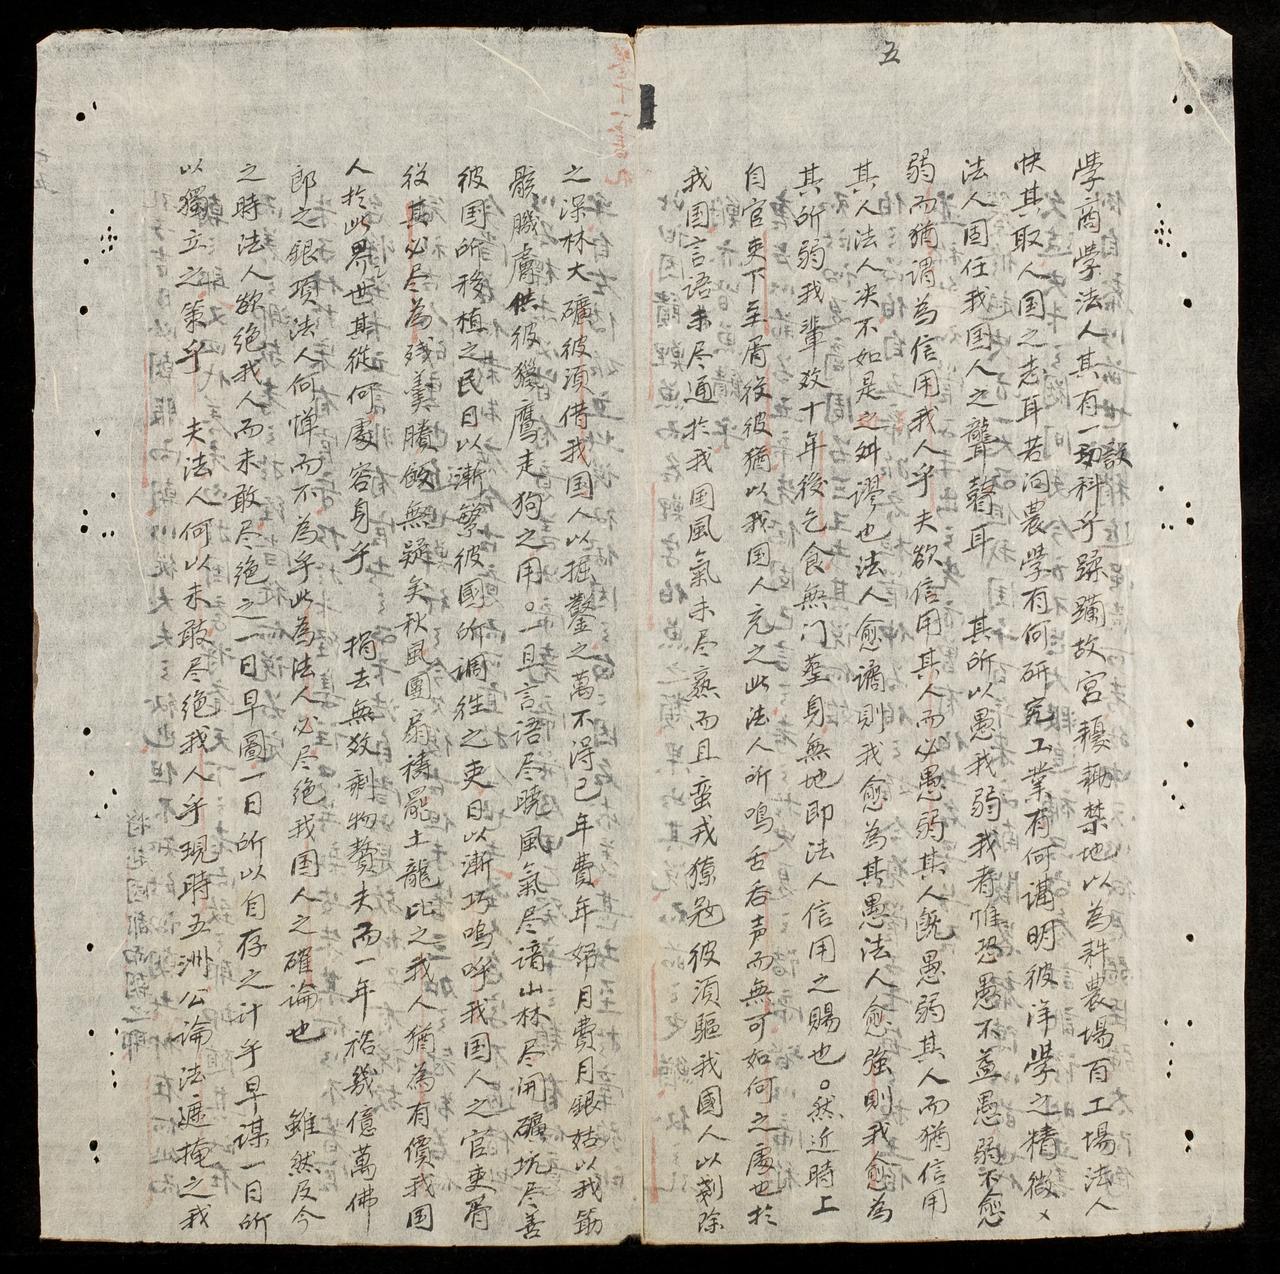 五
學商學法人其有一設科乎蹂躪故宮耰耡禁地以為耕農場百工場法人
快其取人国之志耳若问農學有何研究工業有何講明彼洋學之精微
法人固任我国人之聾瞽耳 其所以愚我弱我者惟恐愚不益愚弱不愈
弱而猶謂為信用我人乎夫欲信用其人而必愚弱其人既愚弱其人而猶信用
其人法人决不如是之舛謬也法人愈譎則我愈為其愚法人愈強則我愈為
其所弱我輩数十年後乞食無门塟身無地即法人信用之賜也。然近時上
自官吏下至胥役彼猶以我国人充之此法人所鳴舌吞声而無可如何之處也於
我国言語未尽通於我国風氣未尽熟而且蛮戎獠冦彼湏驅我國人以剗除
之深林大礦彼湏借我国人以掘鑿之萬不得已年費年婦月費月銀姑以我筋
骸膿膚供彼獵鹰走狗之用。一旦言語尽曉風氣尽諳山林尽開礦坑尽善
彼国所移植之民日以漸繁彼國所调徃之吏日以漸巧嗚呼我国人之官吏胥
役其必尽為殘羹賸飯無疑矣秋風團扇禱罷土龍比之我人猶為有價我国
人於此界世其從何處容身乎 捐去無数剩物贅夫而一年裕幾億萬佛
郎之銀項法人何惮而不為乎此為法人必尽绝我国人之確論也 雖然及今
之時法人欲绝我人而未敢尽绝之一日早圖一日所以自存之计乎早谋一日所
以獨立之策乎 夫法人何以未敢尽绝我人乎現時五洲公論法遮掩之我